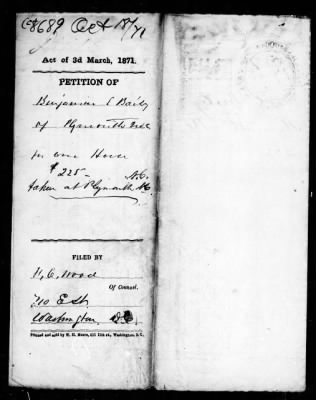 8689 Oct 18/71
Act of 3d March, 1871.
PETITION OF
Benjamin C Baily
of Plymouth N.C.
for one Horse
$225 - N.C.
taken at Plymouth N.C.
FILED BY
H, C, Wood
Of Counsel.
710 E St.
Washington D.C.